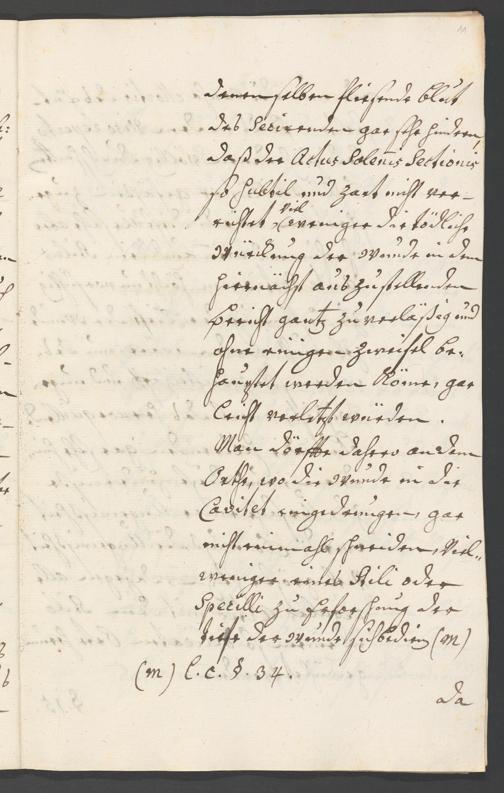 11
denen selben fliesende blut
des Secirenden gar sehr hindern,
daß der Actus Solennis Sectionis
so subtil und zart nicht ver-
richtet, viel weniger die tödliche
Würckung der Wunde in dem
hiernächst auszustellenden
bericht gantz zuverläßig und
ohne einigen Zweifel be-
hauptet werden könne, gar
leicht verletzt würden.
Man dörffte dahero an dem
Orthe, wo die Wunde in die
Cavitet eingedrungen, gar
nicht einmahl schneiden, viel-
weniger eines Stili oder
Specilli zu Erforschung der
tiefe der Wunde sich bedien (m)
(m) l. c. §. 34.
da